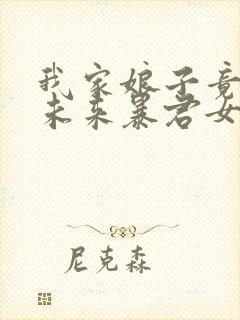 我家娘子竟
未来暴君女
尼克森